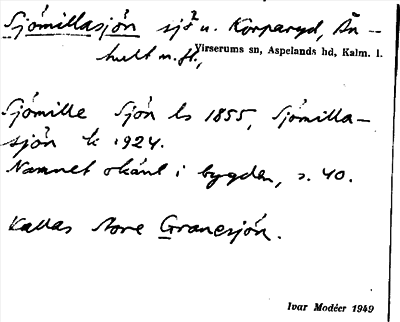 Sjömillasjön sjö u. Korparyd, Än-
hult m. fl., Virserums sn, Aspelands hd, Kalm. l.
Sjömille Sjön ls 1855, Sjömilla-
sjön tk 1924.
Namnet okänt i bygden, s. 40.
Kallas Store Granesjön.
Ivar Modéer 1949